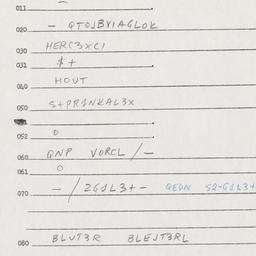 011
020 - QTOJBYIAGLOK
030 HERC3XCI
031 $+
040 HOUT
050 S+PR1NKAL3X
052 O
060 QNP VORCL /-
061 O
070 - / ZG1L3+- QEDN S2-G1L3+
080 BLUT3R BLEJT3RL